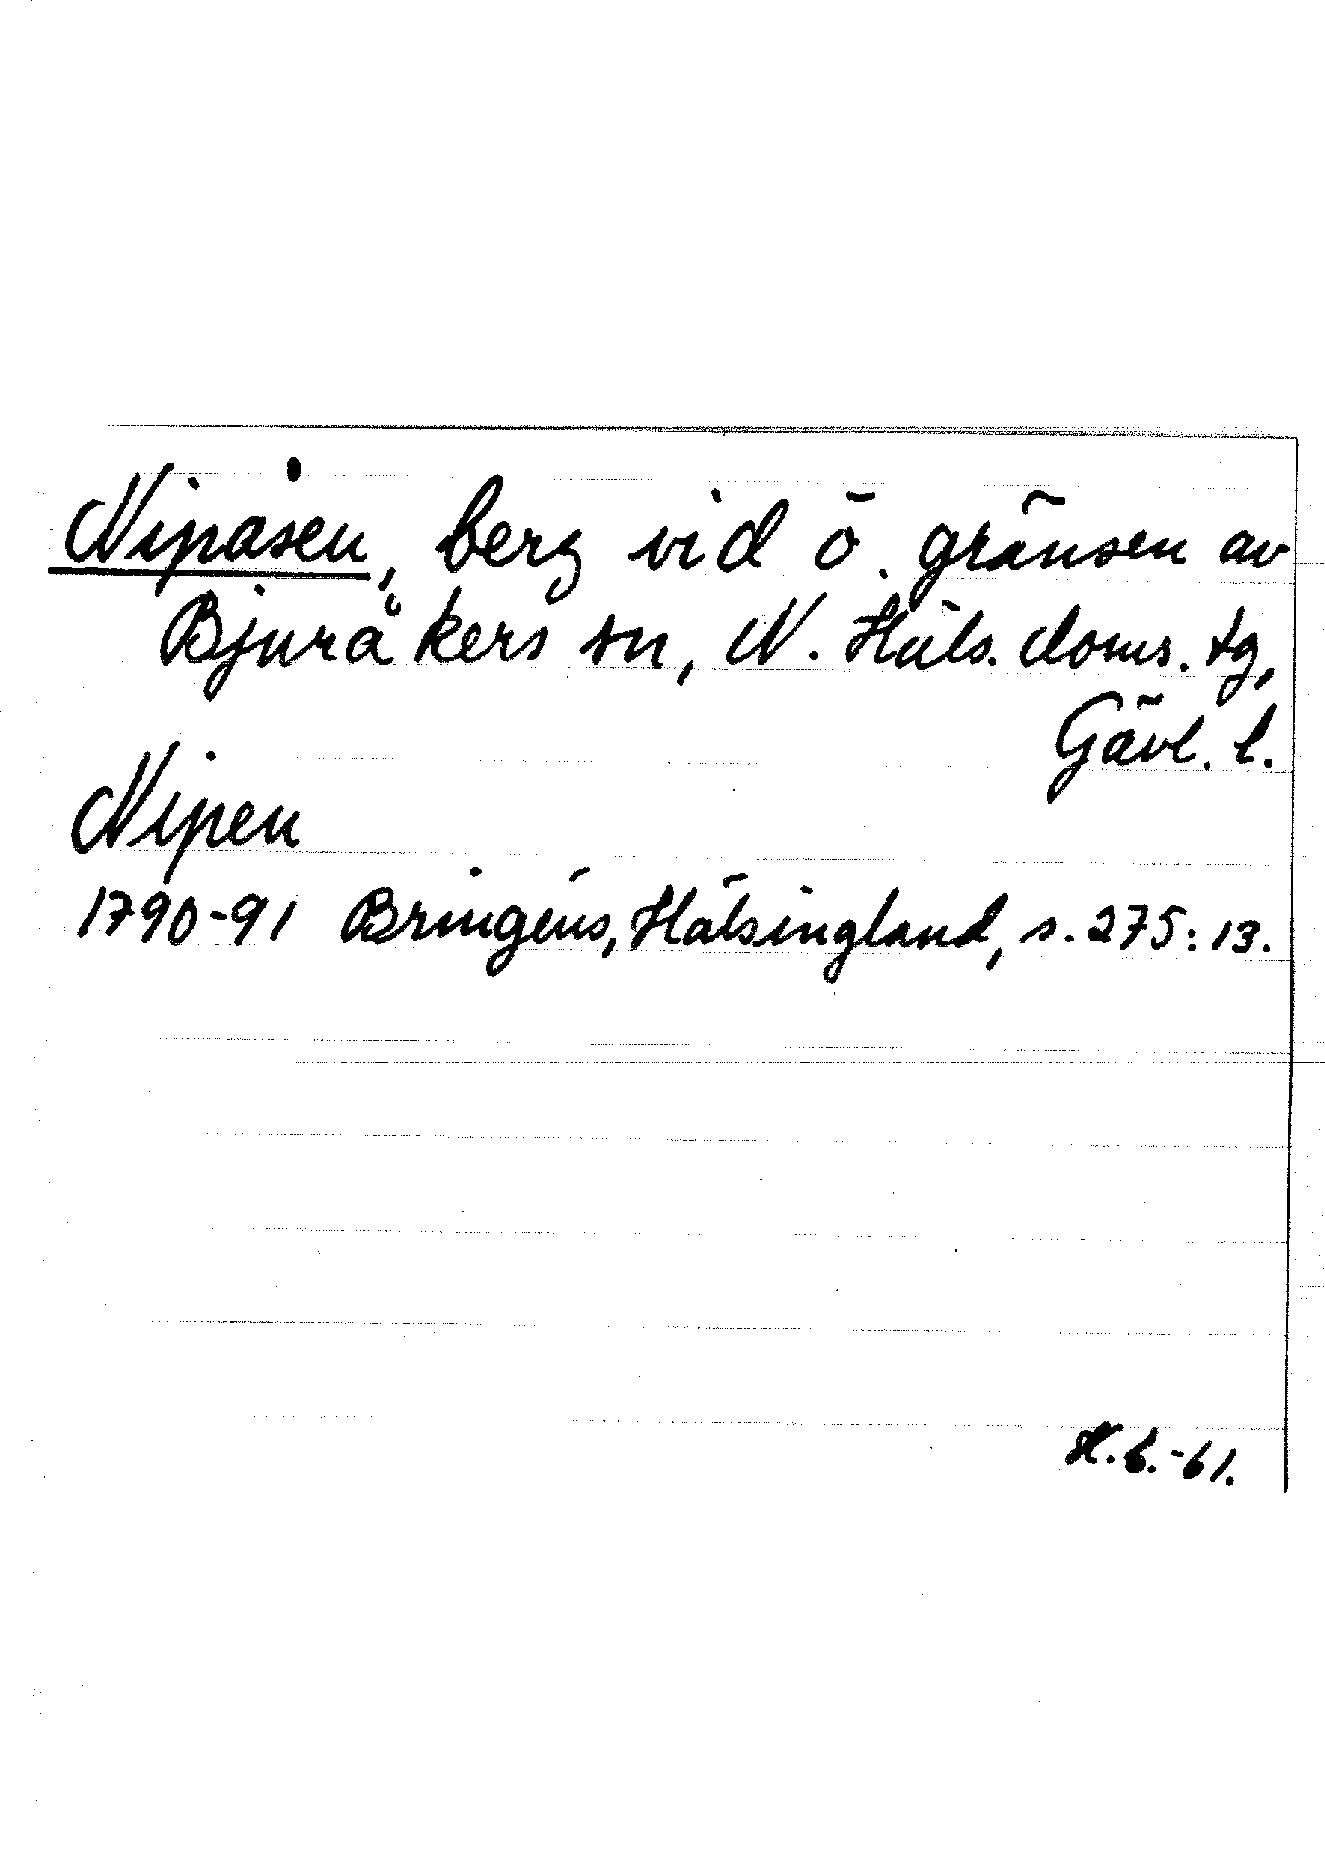 Nipåsen, berg vid ö. gränsen av
Bjuråkers sn, N. Häls. doms. tg,
Gävl. l.
Nipen
1790-91 Bringéus, Hälsingland, s. 275:13.
H.B.-61.